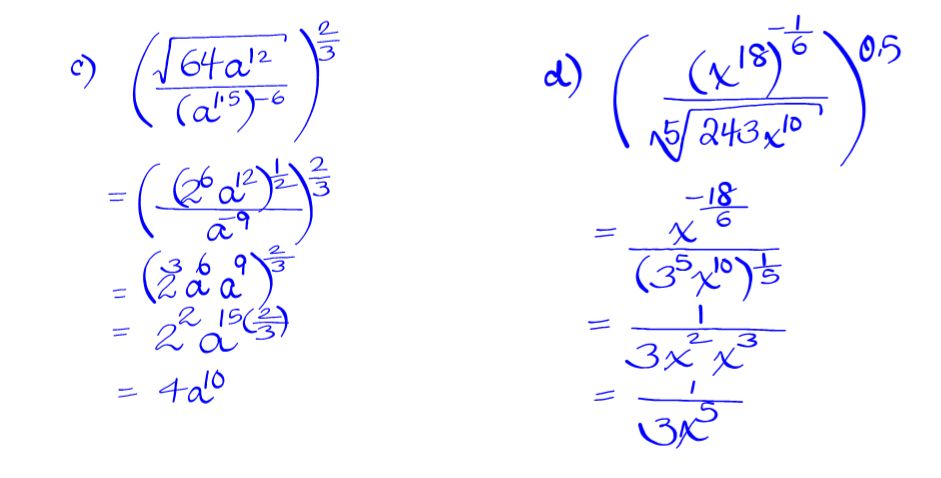 c) (√(64a^12) / (a^1.5)^-6)^(2/3)
= ((2^6 a^12)^(1/2) / a^-9)^(2/3)
= (2^3 a^6 a^9)^(2/3)
= 2^2 a^15(2/3)
= 4a^10
d) ((x^18)^(-1/6) / ⁵√(243x^10))^0.5
= x^(-18/6) / (3^5 x^10)^(1/5)
= 1 / (3x^2 x^3)
= 1 / (3x^5)